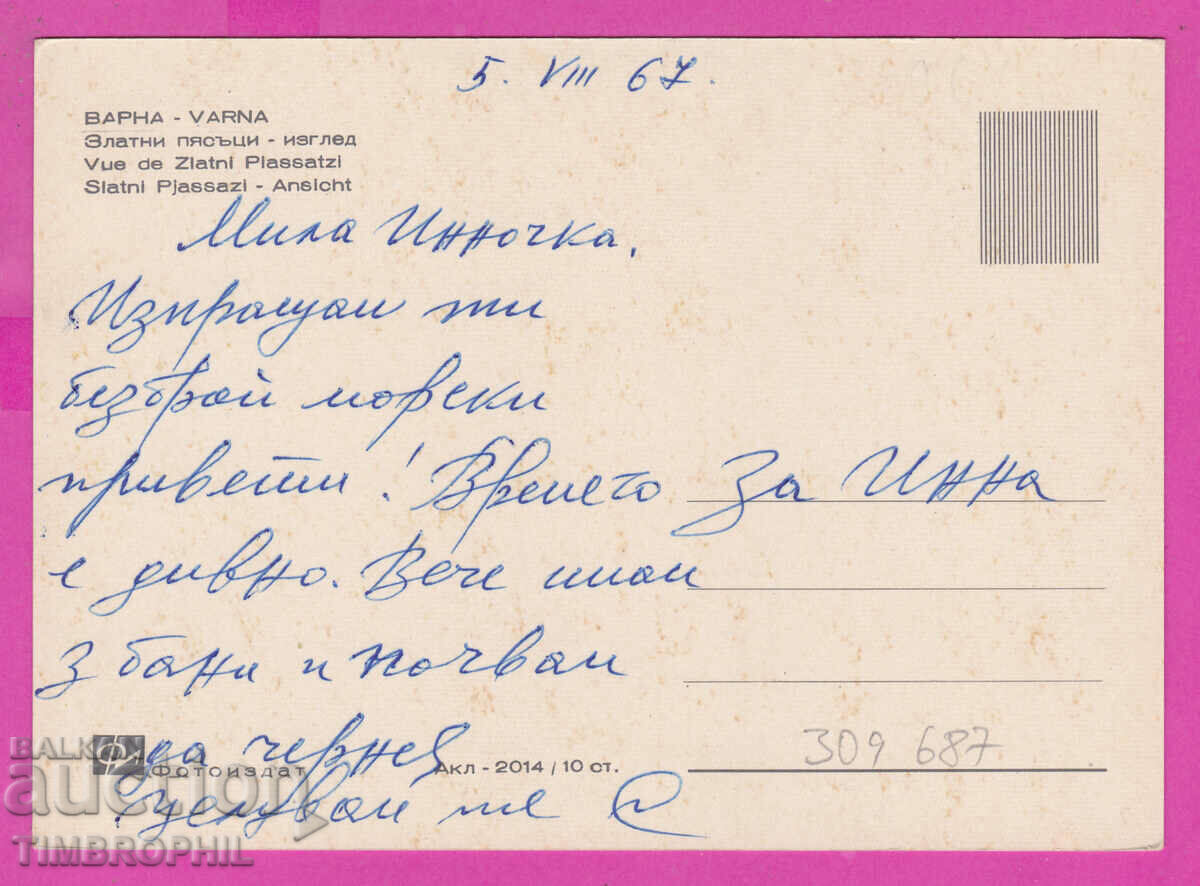 5. VIII 67.
ВАРНА - VARNA
Златни пясъци - изглед
Vue de Zlatni Piassatzi
Slatni Pjassazi - Ansicht
Мила Инночка,
Изпращам ти
безброй морски
привети! Времето
е дивно. Вече имам
3 бани и почвам
да чернея
Целувам те
За Инна
309 687
Фотоиздат
Акл - 2014 / 10 ст.
BALKAN
auction
TIMBROPHIL